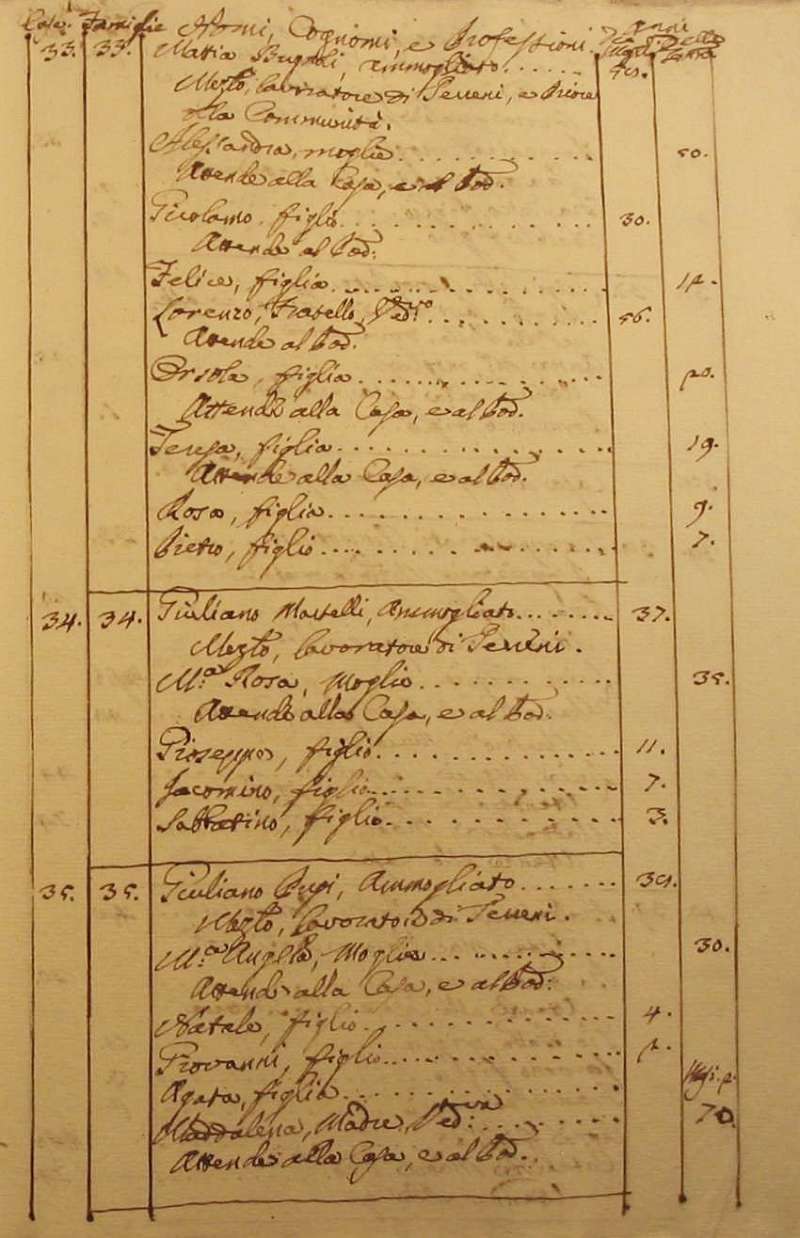 Case. Famiglie Nomi, Cognomi, e Professioni. Anni
33. 33. Mattia ammogliato.
Mezto, lavoratore di Terreni, e Priore
della Communità.
Alessandra, moglie. 50.
Attende alla Casa, e al Pod.
Girolamo, figlio. 30.
Attende al Pod:
Felice, figlia. 12.
Lorenzo, Fratello, Vedvo. 56.
Attende al Pod.
Orsola, figlia. 20.
Attende alla Casa, e al Pod.
Teresa, figlia. 19.
Attende alla Casa, e al Pod.
Rosa, figlia. 9.
Pietro, figlio. 7.
34. 34. Giuliano Martelli, Ammogliato. 37.
Mezto, lavoratore di Terreni.
Ma. Rosa, Moglie. 35.
Attende alla Casa, e al Pod.
Gioseppe, figlio. 11.
Jacomino, figlio. 7.
Sabbatino, figlio. 3.
35. 35. Giuliano Pupi, Ammogliato. 39.
Mezto, lavoratore di Terreni.
Ma. Angela, Moglie. 30.
Attende alla Casa, e al Pod:
Natale, figlio. 4.
Giovanni, figlio. 2.
Agata, figlia. Mesi. 2.
Maddalena, Madre, Vedva: 70.
Attende alla Casa, e al Pod.